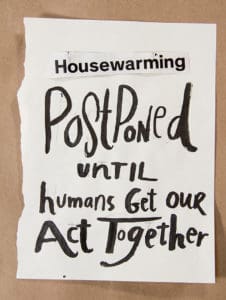 Housewarming
PostPoned
UNTIL
humans Get our
Act Together